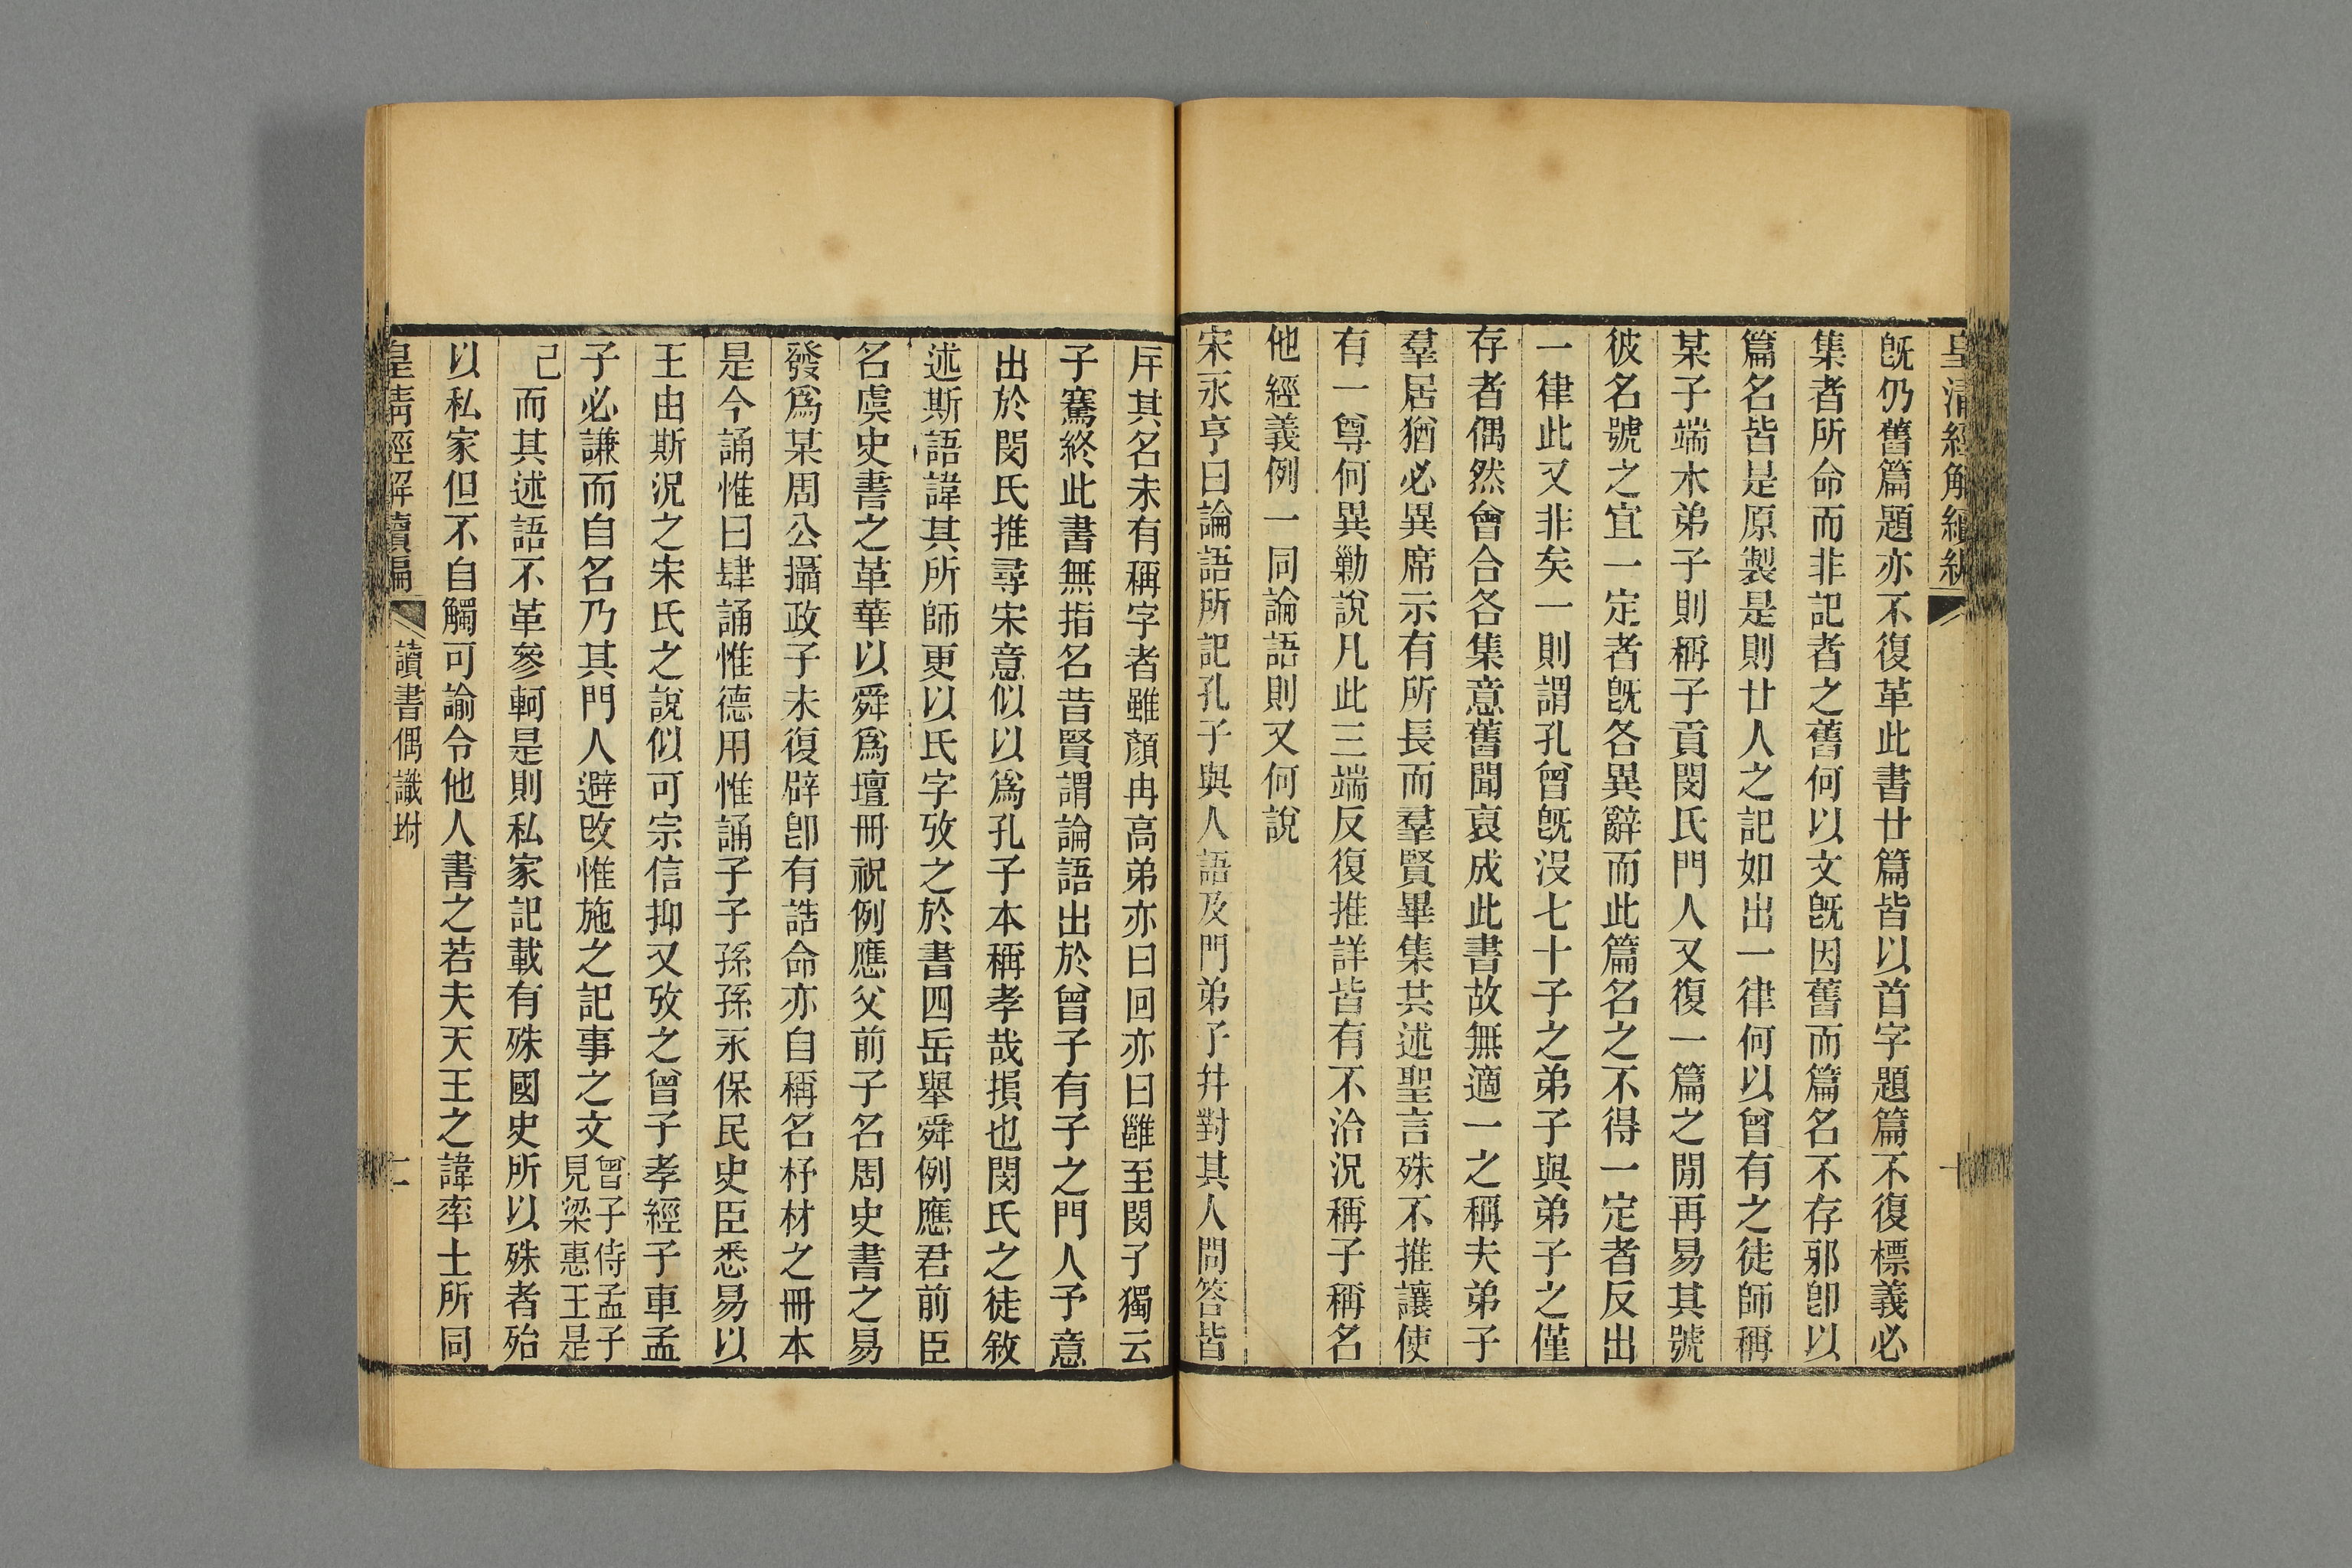 皇清經解續編
旣仍舊篇題亦不復革此書廿篇皆以首字題篇不復標義必
集者所命而非記者之舊何以文旣因舊而篇名不存郭卽以
篇名皆是原製是則廿人之記如出一律何以曾有之徒師稱
某子端木弟子則稱子貢閔氏門人又復一篇之閒再易其號
彼名號之宜一定者旣各異辭而此篇名之不得一定者反出
一律此又非矣一則謂孔曾旣沒七十子之弟子與弟子之僅
存者偶然會合各集意舊聞裒成此書故無適一之稱夫弟子
羣居猶必異席示有所長而羣賢畢集其述聖言殊不推讓使
有一尊何異勦說凡此三端反復推詳皆有不洽況稱子稱名
他經義例一同論語則又何說
宋永亨曰論語所記孔子與人語及門弟子幷對其人問答皆
斥其名未有稱字者雖顏冉高弟亦曰回亦曰雝至閔子獨云
子騫終此書無指名昔賢謂論語出於曾子有子之門人予意
出於閔氏推尋宋意似以爲孔子本稱孝哉損也閔氏之徒敘
述斯語諱其所師更以氏字攷之於書四岳舉舜例應君前臣
名虞史書之革華以舜爲壇冊祝例應父前子名周史書之易
發爲某周公攝政子未復辟卽有誥命亦自稱名杍材之冊本
是今誦惟曰肆誦惟德用惟誦子子孫孫永保民史臣悉易以
王由斯況之宋氏之說似可宗信抑又攷之曾子孝經子車孟
子必謙而自名乃其門人避改惟施之記事之文曾子侍孟子見梁惠王是
己而其述語不革參軻是則私家記載有殊國史所以殊者殆
以私家但不自觸可諭令他人書之若夫天王之諱率土所同
皇清經解續編
讀書偶識坿